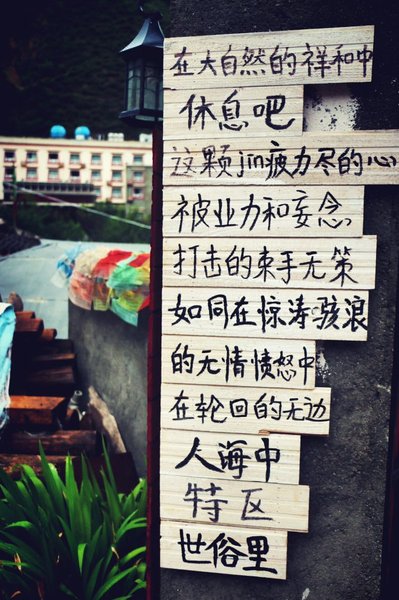 在大自然的祥和中
休息吧
这颗jin疲力尽的心
被业力和妄念
打击的束手无策
如同在惊涛骇浪
的无情愤怒中
在轮回的无边
人海中
特区
世俗里